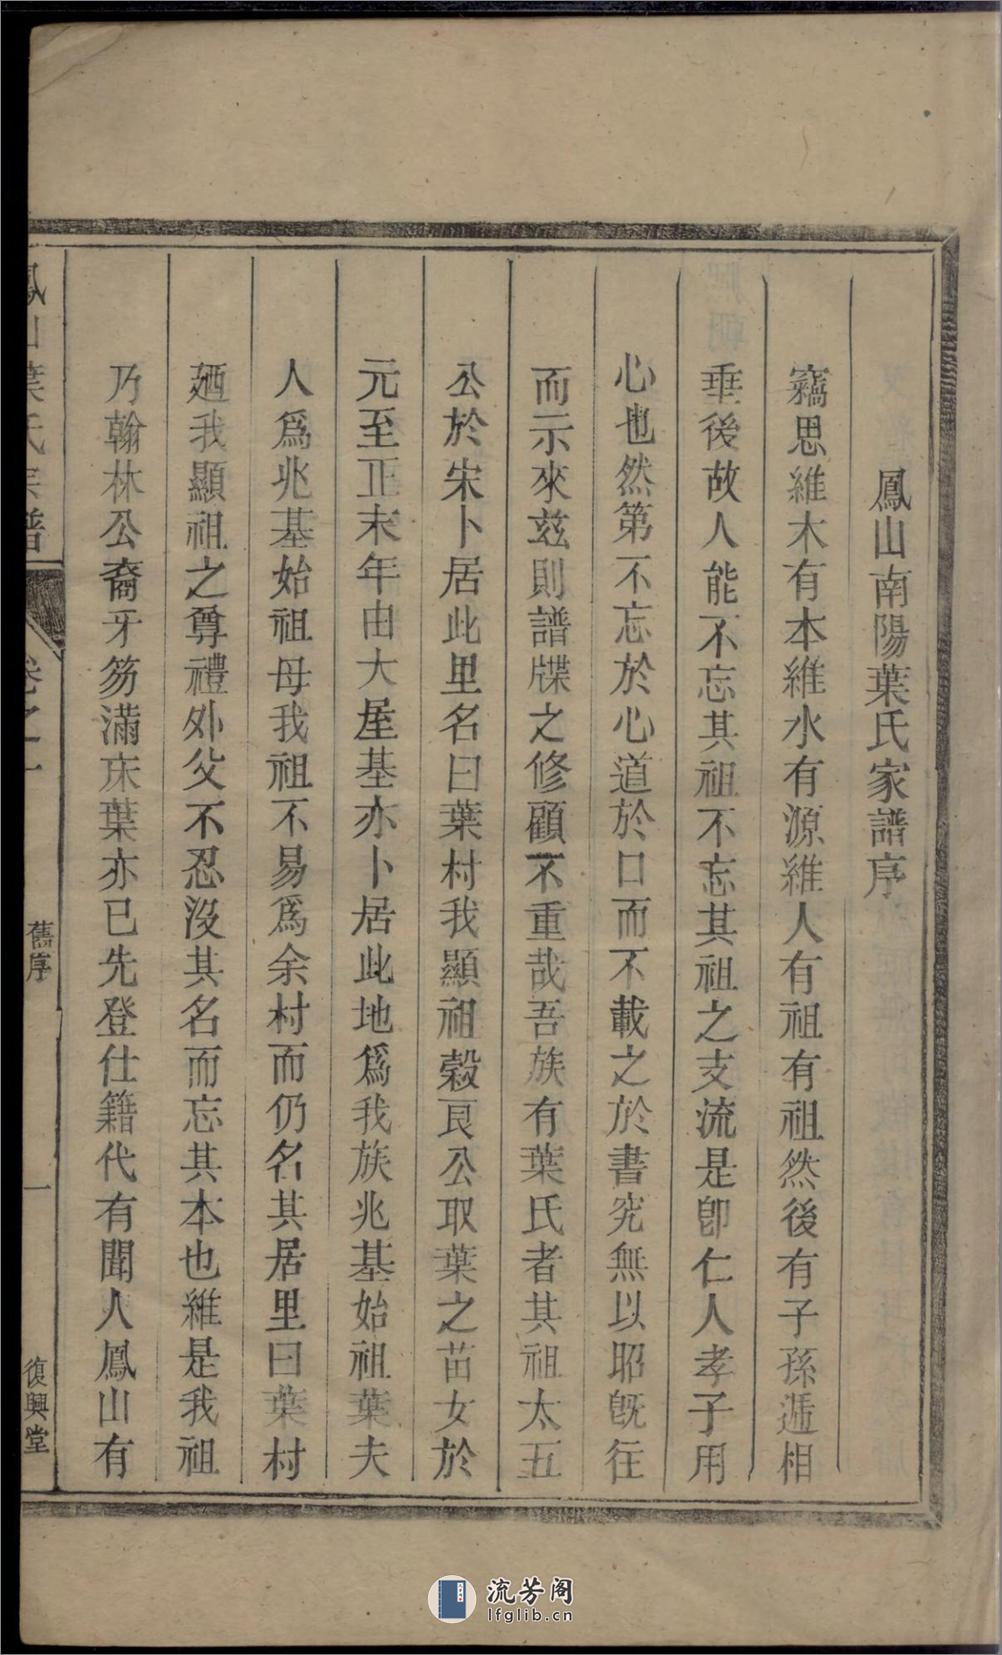 鳳山南陽葉氏家譜序
竊思維木有本維水有源維人有祖有祖然後有子孫遞相
垂後故人能不忘其祖不忘其祖之支流是卽仁人孝子用
心也然第不忘於心道於口而不載之於書究無以昭旣往
而示來玆則譜牒之修顧不重哉吾族有葉氏者其祖太五
公於宋卜居此里名曰葉村我顯祖穀艮公取葉之苗女於
元至正末年由大屋基亦卜居此地爲我族兆基始祖葉夫
人爲兆基始祖母我祖不易爲余村而仍名其居里曰葉村
廼我顯祖之尊禮外父不忍沒其名而忘其本也維是我祖
乃翰林公裔牙笏滿床葉亦已先登仕籍代有聞人鳳山有
鳳山葉氏宗譜
卷之一
舊序
一
復興堂
流芳阁
lfglib.cn